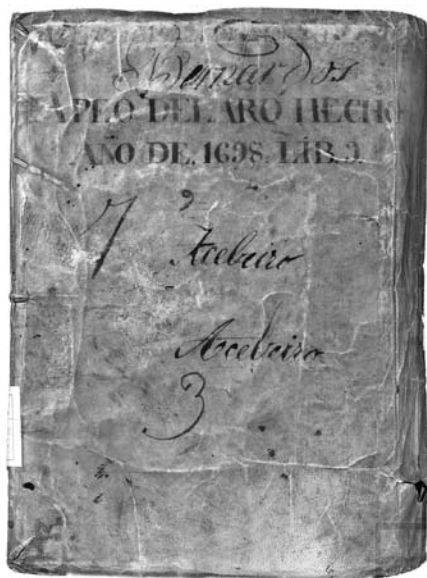 Bernardos
APEO DEL ARO HECHO
AÑO DE. 1698. LIB. 3.
7
Acebeiro
Acebeiro
3